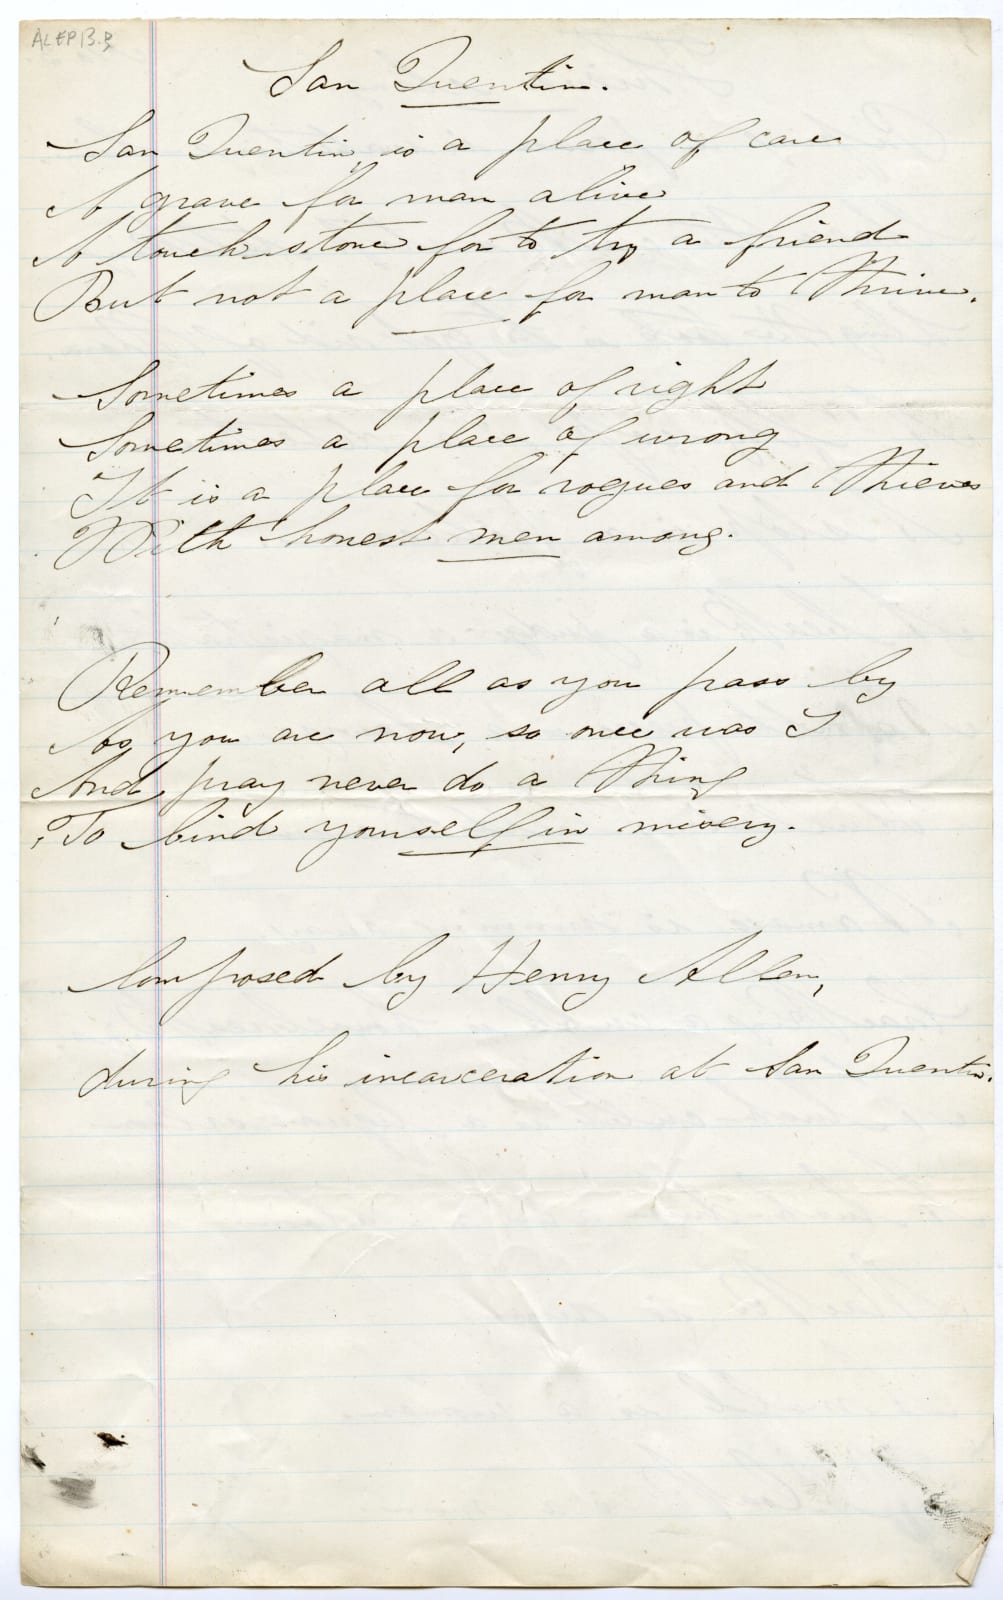 ALEP13.3
San Quentin.
San Quentin is a place of care
A grave for man alive
A touch stone for to try a friend
But not a place for man to thrive.
Sometimes a place of right
Sometimes a place of wrong
It is a place for rogues and thieves
With honest men among.
Remember all as you pass by
As you are now, so once was I
And pray never do a thing
To bind yourself in misery.
Composed by Henry Allen,
during his incarceration at San Quentin.